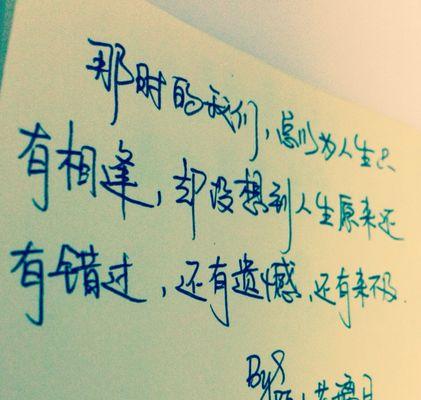 那时的我们,总以为人生只
有相逢,却没想到人生原来还
有错过,还有遗憾,还有来不及.
By